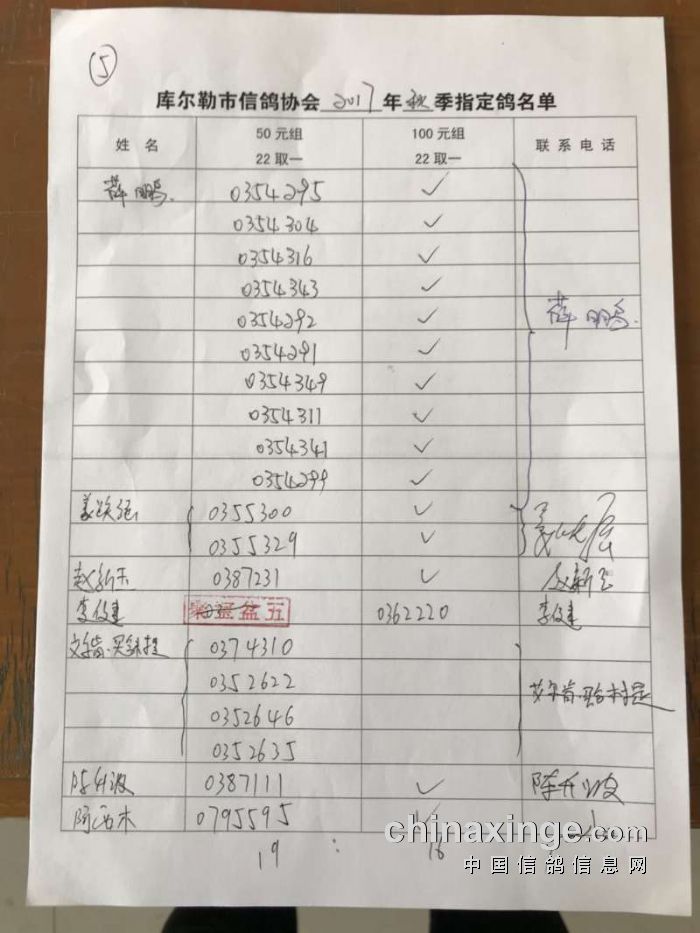 ⑤
库尔勒市信鸽协会 2017 年 秋 季指定鸽名单
姓 名 50元组 22取一 100元组 22取一 联系电话
薛鹏. 0354295 ✓
0354304 ✓
0354316 ✓
0354343 ✓
0354292 ✓ 薛鹏.
0354291 ✓
0354349 ✓
0354311 ✓
0354341 ✓
0354299 ✓
0355300 ✓
0355329 ✓
赵新玉 0387231 ✓ 赵新玉
李俊建 0362220 李俊建
0374310
0352622
0352646
0352635
陈升波 0387111 ✓ 陈升波
阿西木 0795595 ✓
19 : 16 :
chinaxinge.com
中国信鸽信息网